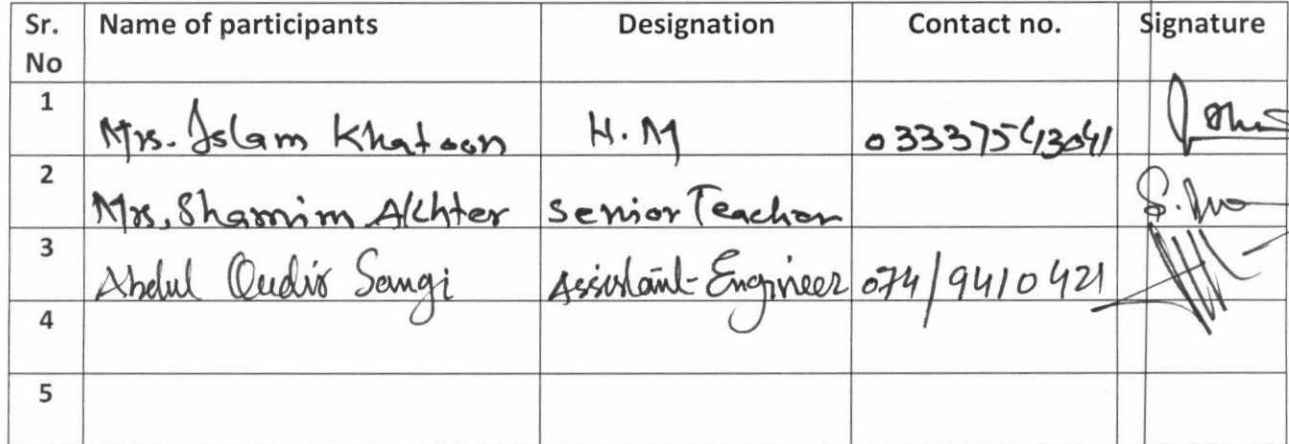 Sr. No Name of participants Designation Contact no. Signature
1 Mrs. Islam Khatoon H.M 03337543041
2 Mrs, Shamim Akhter Senior Teacher
3 Abdul Qudir Sangi Assistant Engineer 074/9410421
4
5